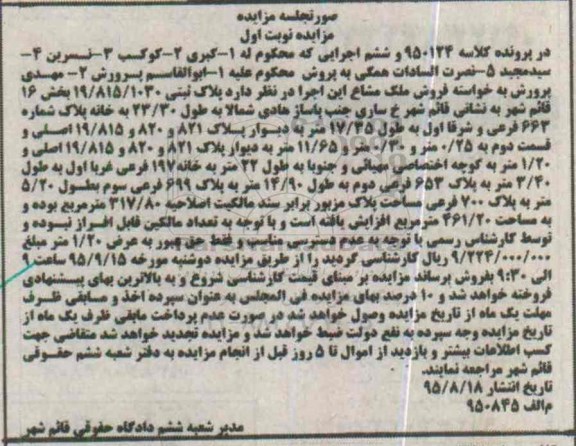 صورتجلسه مزایده
مزایده نوبت اول
در پرونده کلاسه ۹۵۰۱۲۴ و ششم اجرایی که محکوم له ۱-کبری ۲-کوکب ۳-نسرین ۴-
سیدمجید ۵-نصرت السادات همگی به پروش محکوم علیه ۱-ابوالقاسم پرورش ۲- مهدی
پرورش به خواسته فروش ملک مشاع این اجرا در نظر دارد پلاک ثبتی ۱۹/۸۱۵/۱۰۳۰ بخش ۱۶
قائم شهر به نشانی قائم شهر خ ساری جنب پاساژ هادی شمالا به طول ۲۳/۳۰ به خانه پلاک شماره
۶۶۳ فرعی و شرقا اول به طول ۱۷/۳۵ متر به دیوار پلاک ۸۲۱ و ۸۲۰ و ۱۹/۸۱۵ اصلی و
قسمت دوم به ۰/۲۵ متر و ۰/۳۰ متر و ۱۱/۶۵ متر به دیوار پلاک ۸۲۱ و ۸۲۰ و ۱۹/۸۱۵ اصلی و
۱/۲۰ متر به کوچه اختصاصی میهائی و جنوبا به طول ۲۲ متر به خانه ۱۹۷ فرعی غربا اول به طول
۳/۴۰ متر به پلاک ۶۵۳ فرعی دوم به طول ۱۴/۹۰ متر به پلاک ۶۹۹ فرعی سوم بطول ۵/۲۰
متر به پلاک ۷۰۰ فرعی مساحت پلاک مزبور برابر سند مالکیت اصلاحیه ۳۱۷/۸۰ مترمربع بوده و
به مساحت ۴۶۱/۲۰ مترمربع افزایش یافته است و با توجه به تعداد مالکین قابل افراز نبوده و
توسط کارشناس رسمی با توجه به عدم دسترسی مناسب و فقط حق عبور به عرض ۱/۲۰ متر مبلغ
۹/۲۲۴/۰۰۰/۰۰۰ ریال کارشناسی گردید را از طریق مزایده دوشنبه مورخه ۹۵/۹/۱۵ ساعت ۹
الی ۹:۳۰ بفروش برساند مزایده بر مبنای قیمت کارشناسی شروع و به بالاترین بهای پیشنهادی
فروخته خواهد شد و ۱۰ درصد بهای مزایده فی المجلس به عنوان سپرده اخذ و مابقی ظرف
مهلت یک ماه از تاریخ مزایده وصول خواهد شد در صورت عدم پرداخت مابقی ظرف یک ماه از
تاریخ مزایده وجه سپرده به نفع دولت ضبط خواهد شد و مزایده تجدید خواهد شد متقاضی جهت
کسب اطلاعات بیشتر و بازدید از اموال تا ۵ روز قبل از انجام مزایده به دفتر شعبه ششم حقوقی
قائم شهر مراجعه نمایند.
تاریخ انتشار ۹۵/۸/۱۸
م الف ۹۵۰۸۴۵
مدیر شعبه ششم دادگاه حقوقی قائم شهر